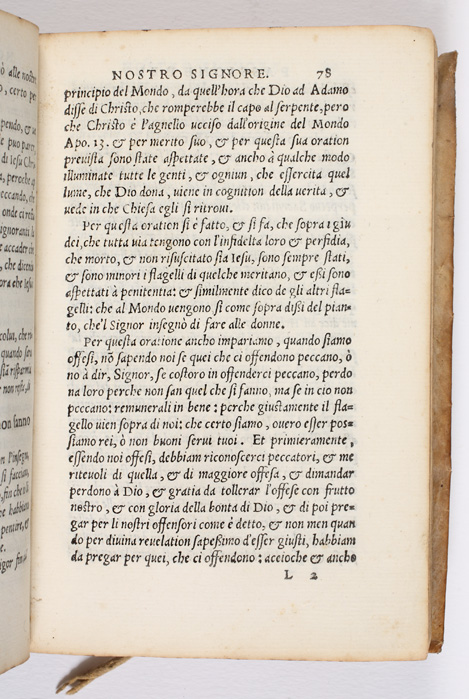 ò alle nostre
, certo per
NOSTRO SIGNORE. 78
principio del Mondo, da quell'hora che Dio ad Adamo
disse di Christo, che romperebbe il capo al serpente, pero
che Christo è l'agnello ucciso dall'origine del Mondo
Apo. 13. & per merito suo, & per questa sua oration
prevista sono state aspettate, & ancho à qualche modo
illuminate tutte le genti, & ogniun, che essercita quel
lume, che Dio dona, uiene in cognition della uerita, &
uede in che Chiesa egli si ritroui.
Per questa oratien si è fatto, & si fa, che sopra i giu
dei, che tutta uia tengono con l'infidelta loro & perfidia,
che morto, & non risuscitato sia Iesu, sono sempre stati,
& sono minori i flagelli di quelche meritano, & eßi sono
aspettati à penitentia: & similmente dico de gli altri fla-
gelli: che al Mondo uengono si come sopra dißi del pian-
to, che'l Signor insegnò di fare alle donne.
Per questa oratione ancho impariamo, quando siamo
offesi, nō sapendo noi se quei che ci offendono peccano, ò
no à dir, Signor, se costoro in offenderci peccano, perdo
na loro perche non san quel che si fanno, ma se in cio non
peccano: remunerali in bene: perche giustamente il fla-
gello uien sopra di noi: che certo siamo, ouero esser pos-
siamo rei, ò non buoni serui tuoi. Et primieramente,
essendo noi offesi, debbiam riconoscerci peccatori, & me
riteuoli di quella, & di maggiore offesa, & dimandar
perdono à Dio, & gratia da tollerar l'offese con frutto
nostro, & con gloria della bonta di Dio, & di poi pre-
gar per li nostri offensori come è detto, & non men quan
do per diuina reuelation sapeßimo d'esser giusti, habbiam
da pregar per quei, che ci offendono: accioche & ancho
L 2